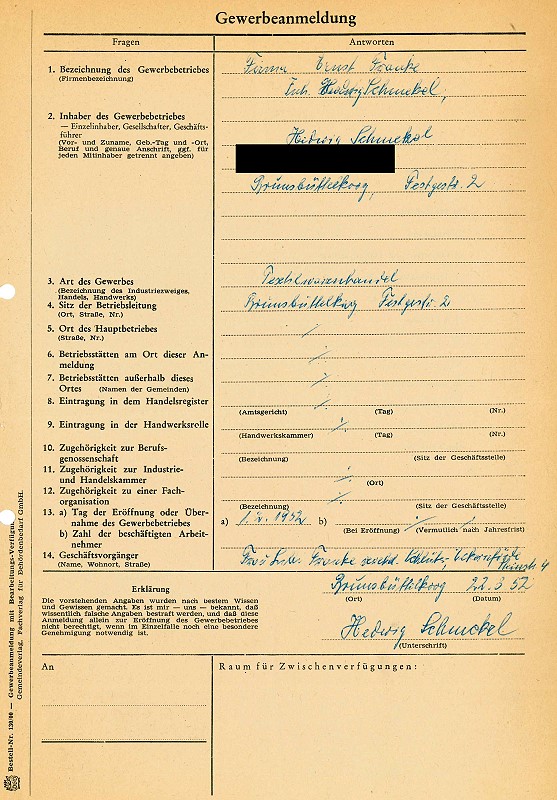 Gewerbeanmeldung
Fragen
Antworten
1. Bezeichnung des Gewerbebetriebes
(Firmenbezeichnung)
Firma Ernst Franke
Inh. Hedwig Schmekel,
2. Inhaber des Gewerbebetriebes
— Einzelinhaber, Gesellschafter, Geschäfts-
führer
(Vor- und Zuname, Geb.-Tag und -Ort,
Beruf und genaue Anschrift, ggf. für
jeden Mitinhaber getrennt angeben)
Hedwig Schmekel
Brunsbüttelkoog, Festgestr. 2
3. Art des Gewerbes
(Bezeichnung des Industriezweiges,
Handels, Handwerks)
Textilwarenhandel
4. Sitz der Betriebsleitung
(Ort, Straße, Nr.)
Brunsbüttelkoog Festgestr. 2
5. Ort des Hauptbetriebes
(Straße, Nr.)
6. Betriebsstätten am Ort dieser An-
meldung
7. Betriebsstätten außerhalb dieses
Ortes (Namen der Gemeinden)
8. Eintragung in dem Handelsregister
(Amtsgericht) (Tag) (Nr.)
9. Eintragung in der Handwerksrolle
(Handwerkskammer) (Tag) (Nr.)
10. Zugehörigkeit zur Berufs-
genossenschaft
(Bezeichnung) (Sitz der Geschäftsstelle)
11. Zugehörigkeit zur Industrie-
und Handelskammer
(Ort)
12. Zugehörigkeit zu einer Fach-
organisation
(Bezeichnung) (Sitz der Geschäftsstelle)
13. a) Tag der Eröffnung oder Über-
nahme des Gewerbebetriebes
b) Zahl der beschäftigten Arbeit-
nehmer
a) 1.2.1952 b)
(Bei Eröffnung) (Vermutlich nach Jahresfrist)
14. Geschäftsvorgänger
(Name, Wohnort, Straße)
Frau Franke Eckernförde
Erklärung
Die vorstehenden Angaben wurden nach bestem Wissen
und Gewissen gemacht. Es ist mir — uns — bekannt, daß
wissentlich falsche Angaben bestraft werden, und daß diese
Anmeldung allein zur Eröffnung des Gewerbebetriebes
nicht berechtigt, wenn im Einzelfalle noch eine besondere
Genehmigung notwendig ist.
Brunsbüttelkoog 22.3.52
(Ort) (Datum)
Hedwig Schmekel
(Unterschrift)
An
Raum für Zwischenverfügungen:
Bestell-Nr. 130/00 — Gewerbeanmeldung mit Bearbeitungs-Verfügn.
Gemeindeverlag, Fachverlag für Behördenbedarf GmbH.